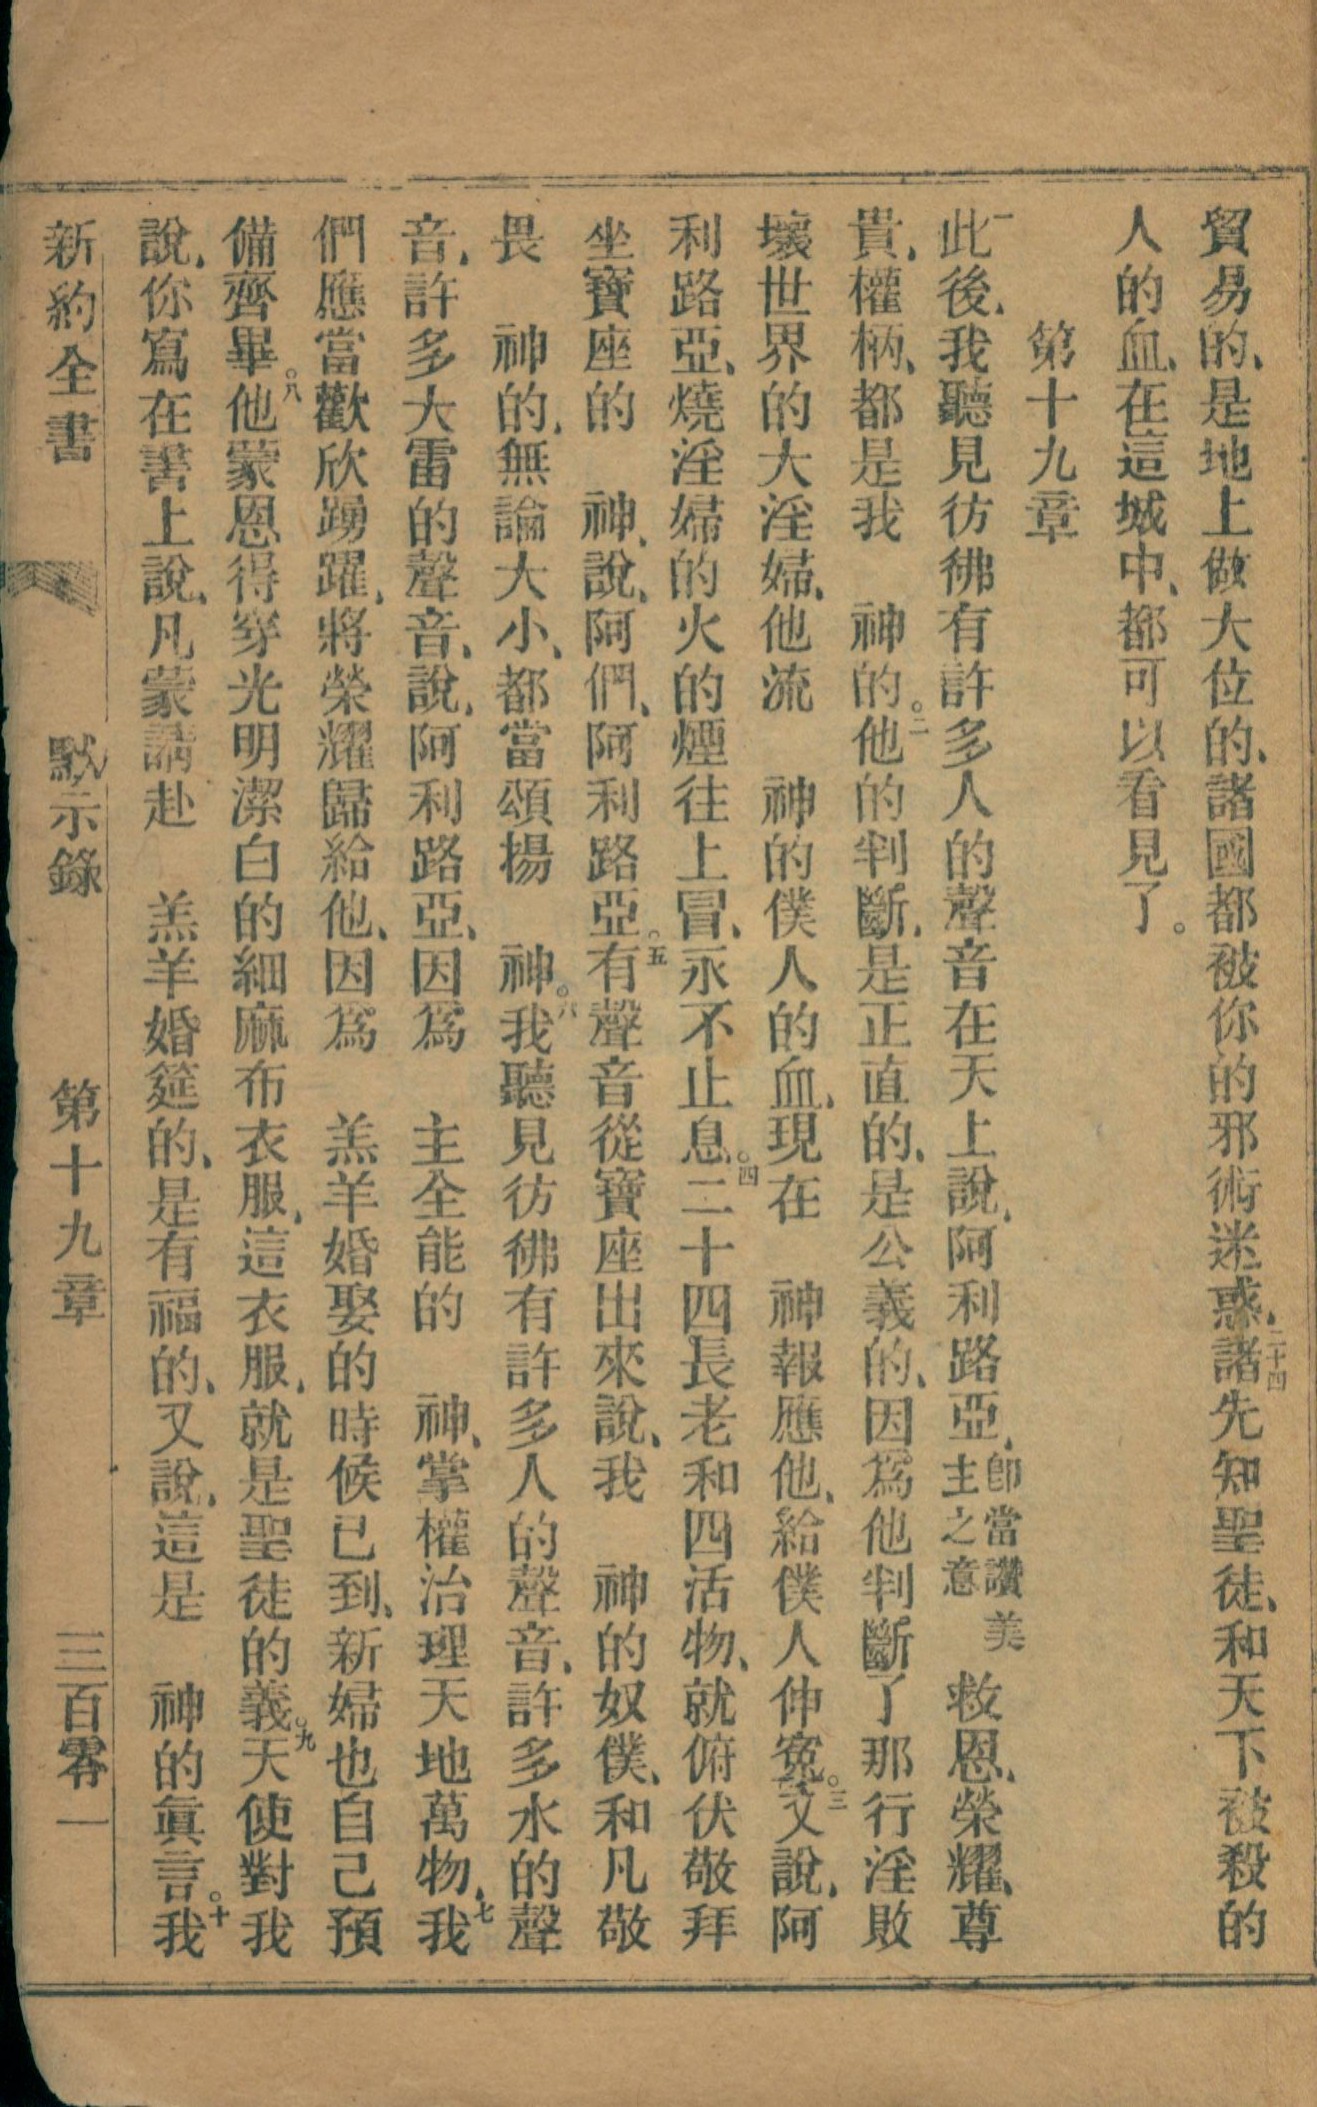 貿易的、是地上做大位的、諸國都被你的邪術迷惑、二十四諸先知聖徒、和天下被殺的
人的血、在這城中、都可以看見了。
第十九章
一此後、我聽見彷彿有許多人的聲音在天上說、阿利路亞、卽當讚美主之意　救恩、榮耀、尊
貴、權柄、都是我　神的。二他的判斷、是正直的、是公義的、因爲他判斷了那行淫敗
壞世界的大淫婦、他流　神的僕人的血、現在　神報應他、給僕人伸寃。三又說、阿
利路亞、燒淫婦的火的煙往上冒、永不止息。四二十四長老和四活物、就俯伏敬拜
坐寶座的　神、說、阿們、阿利路亞。五有聲音從寶座出來說、我　神的奴僕、和凡敬
畏　神的、無論大小、都當頌揚　神。六我聽見彷彿有許多人的聲音、許多水的聲
音、許多大雷的聲音、說、阿利路亞、因爲　主全能的　神、掌權治理天地萬物、七我
們應當歡欣踴躍、將榮耀歸給他、因爲　羔羊婚娶的時候已到、新婦也自己預
備齊畢。八他蒙恩得穿光明潔白的細麻布衣服、這衣服、就是聖徒的義。九天使對我
說、你寫在書上說、凡蒙請赴　羔羊婚筵的、是有福的、又說、這是　神的眞言。十我
新約全書　默示錄　第十九章　三百零一